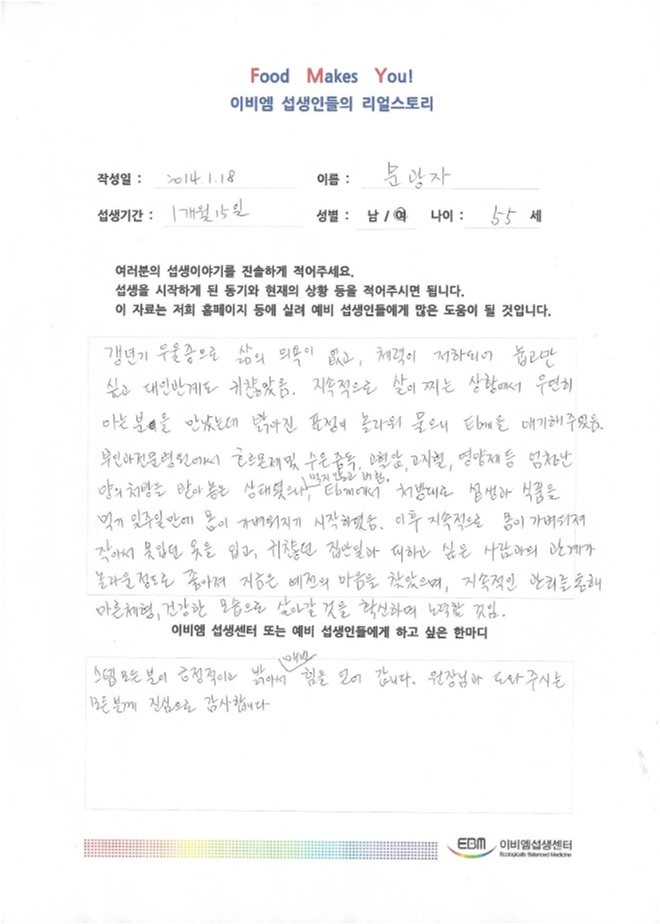 Food Makes You!
이비엠 섭생인들의 리얼스토리
작성일 : 2014.1.18 이름 : 문광자
섭생기간 : 1개월 15일 성별 : 남 / 여 나이 : 55 세
여러분의 섭생이야기를 진솔하게 적어주세요.
섭생을 시작하게 된 동기와 현재의 상황 등을 적어주시면 됩니다.
이 자료는 저희 홈페이지 등에 실려 예비 섭생인들에게 많은 도움이 될 것입니다.
갱년기 우울증으로 삶의 의욕이 없고, 체력이 저하되어 눕고만
싶고 대인관계도 귀찮았음. 지속적으로 살이 찌는 상황에서 우연히
아는 분을 만났는데 밝아진 표정에 놀라워 물으니 타케를 얘기해 주었음.
부인과전문병원에서 호르몬제 및 수은중독, 고혈압, 고지혈, 영양제 등 엄청난
먹지 않고 버림.
양의 처방을 받아 놓은 상태였으나, 타케에서 처방대로 섭생과 식품을
먹기 일주일만에 몸이 가벼워지기 시작하였음. 이후 지속적으로 몸이 가벼워져
작아서 못입던 옷을 입고, 귀찮던 집안일과 피하고 싶은 사람과의 관계가
놀라울정도로 좋아져 지금은 예전의 마음을 찾았으며, 지속적인 관리를 통해
마른체형, 건강한 모습으로 살아갈 것을 확신하며 노력할 것임.
이비엠 섭생센터 또는 예비 섭생인들에게 하고 싶은 한마디
매번
스텝 모든 분이 긍정적이고 밝아서 힘을 얻어 갑니다. 원장님과 도와주시는
모든 분께 진심으로 감사합니다
EBM 이비엠섭생센터
Ecologically Balanced Medicine